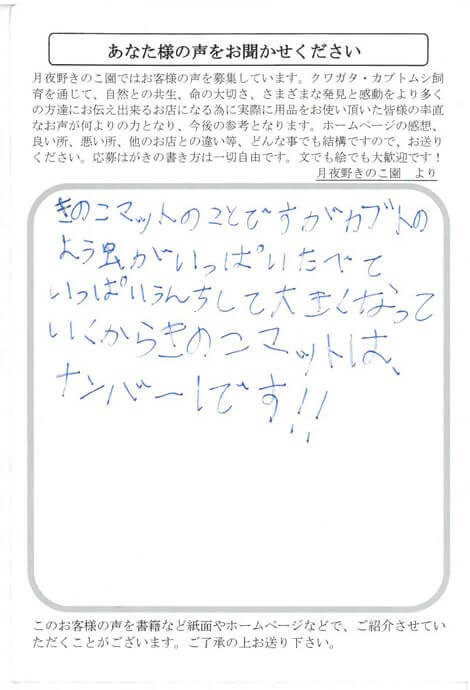 あなた様の声をお聞かせください
月夜野きのこ園ではお客様の声を募集しています。クワガタ・カブトムシ飼
育を通じて、自然との共生、命の大切さ、さまざまな発見と感動をより多く
の方達にお伝え出来るお店になる為に実際に用品をお使い頂いた皆様の率直
なお声が何よりの力となり、今後の参考となります。ホームページの感想、
良い所、悪い所、他のお店との違い等、どんな事でも結構ですので、お送り
ください。応募はがきの書き方は一切自由です。文でも絵でも大歓迎です！
月夜野きのこ園 より
きのこマットのことですがカブトの
よう虫がいっぱいたべて
いっぱいうんちして大きくなって
いくからきのこマットは、
ナンバー1です!!
このお客様の声を書籍など紙面やホームページなどで、ご紹介させてい
ただくことがございます。ご了承の上お送り下さい。